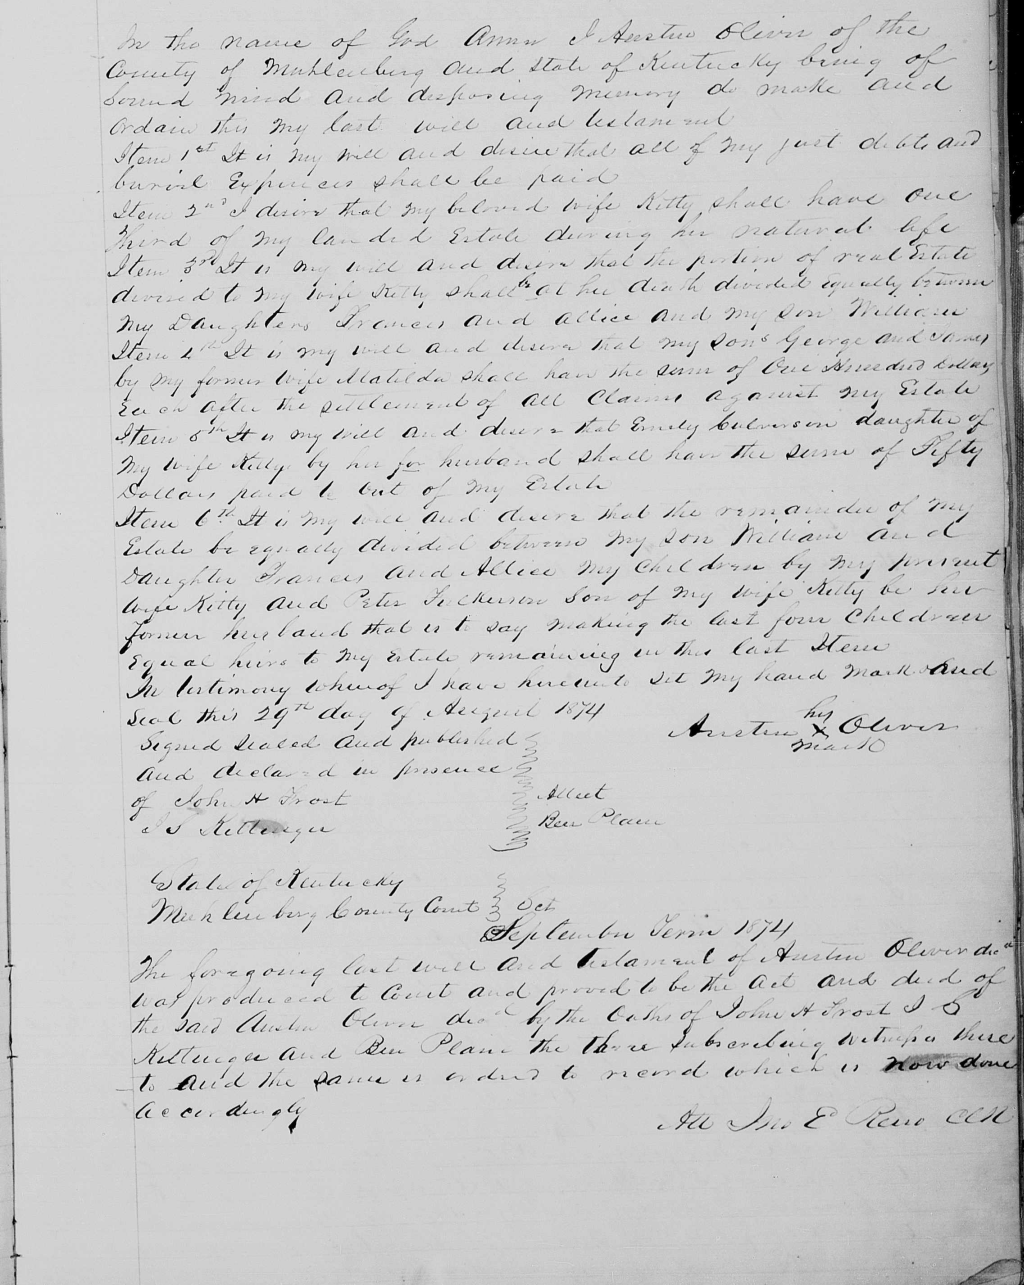 In the name of God Amen I Austin Oliver of the
County of Muhlenberg and State of Kentucky being of
Sound mind and disposing memory do make and
ordain this my last will and testament
Item 1st It is my will and desire that all of my just debts and
burial Expences shall be paid
Item 2nd I desire that my beloved wife Kitty shall have one
third of my landed Estate during her natural life
Item 3rd It is my will and desire that the portion of real Estate
devised to my wife Kitty shall be at her death divided Equally between
my Daughters Frances and Allice and my son William
Item 4th It is my will and desire that my sons George and James
by my former wife Matilda shall have the sum of One Hundred Dollars
Each after the settlement of all Claims against my Estate
Item 5th It is my will and desire that Emely Culverson daughter of
my wife Kitty by her for husband shall have the sum of Fifty
Dollars paid to out of my Estate
Item 6th It is my will and desire that the remainder of my
Estate be equally divided between my son William and
Daughter Frances and Allice my Children by my present
wife Kitty and Peter Fulkerson Son of my wife Kitty be her
former husband that is to say making the last four Children
Equal heirs to my Estate remaining in this last Item
In testimony whereof I have hereunto set my hand mark and
Seal this 29th day of August 1874
his
Austin X Oliver
mark
Signed sealed and published
and declared in presence
of John H Frost
J S Kittinger
Attest
Ben Plain
State of Kentucky
Muhlenberg County Court Sct
September Term 1874
The foregoing last will and testament of Austin Oliver decd
was produced to Court and proved to be the act and deed of
the said Austin Oliver decd by the Oaths of John H Frost J S
Kittinger and Ben Plain the three subscribing witnesses there
to and the same is ordred to record which is now done
accordingly
Att Jno E Reno Clk